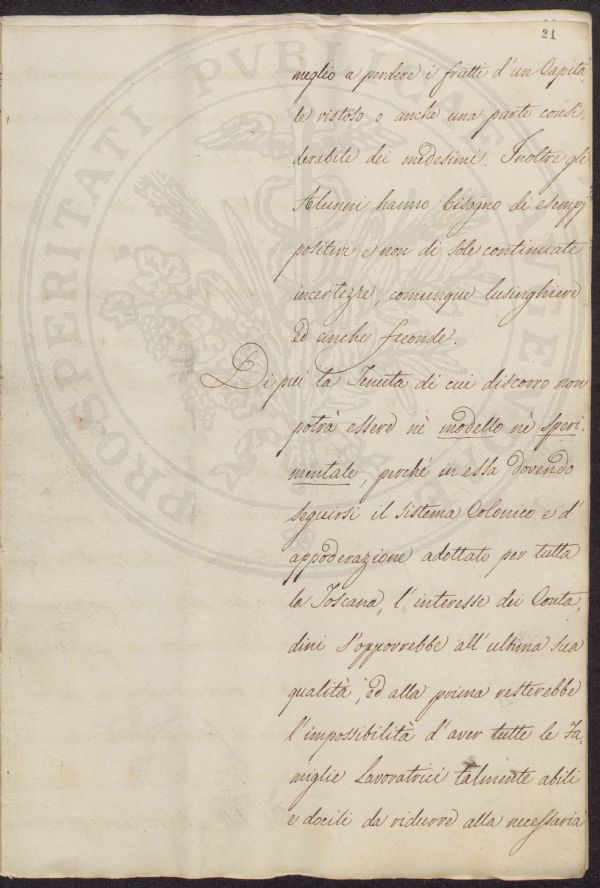 21
meglio a perdere i frutti d'un Capita-
le vistoso o anche una parte consi-
derabile dei medesimi. Inoltre gli
Alunni hanno bisogno di esempj
positivi e non di sole continuate
incertezze, comunque lusinghiere
ed anche feconde.
Di più la Tenuta di cui discorro non
potrà essere nè modello nè speri-
mentale, perchè in essa dovendo
seguirsi il sistema Colonico e d'
appoderazione adottato per tutta
la Toscana, l'interesse dei Conta-
dini s'opporrebbe all'ultima sua
qualità; ed alla prima resterebbe
l'impossibilità d'aver tutte le Fa-
miglie Lavoratrici talmente abili
e docili da ridurre alla necessaria
PROSPERITATI PUBLICAE